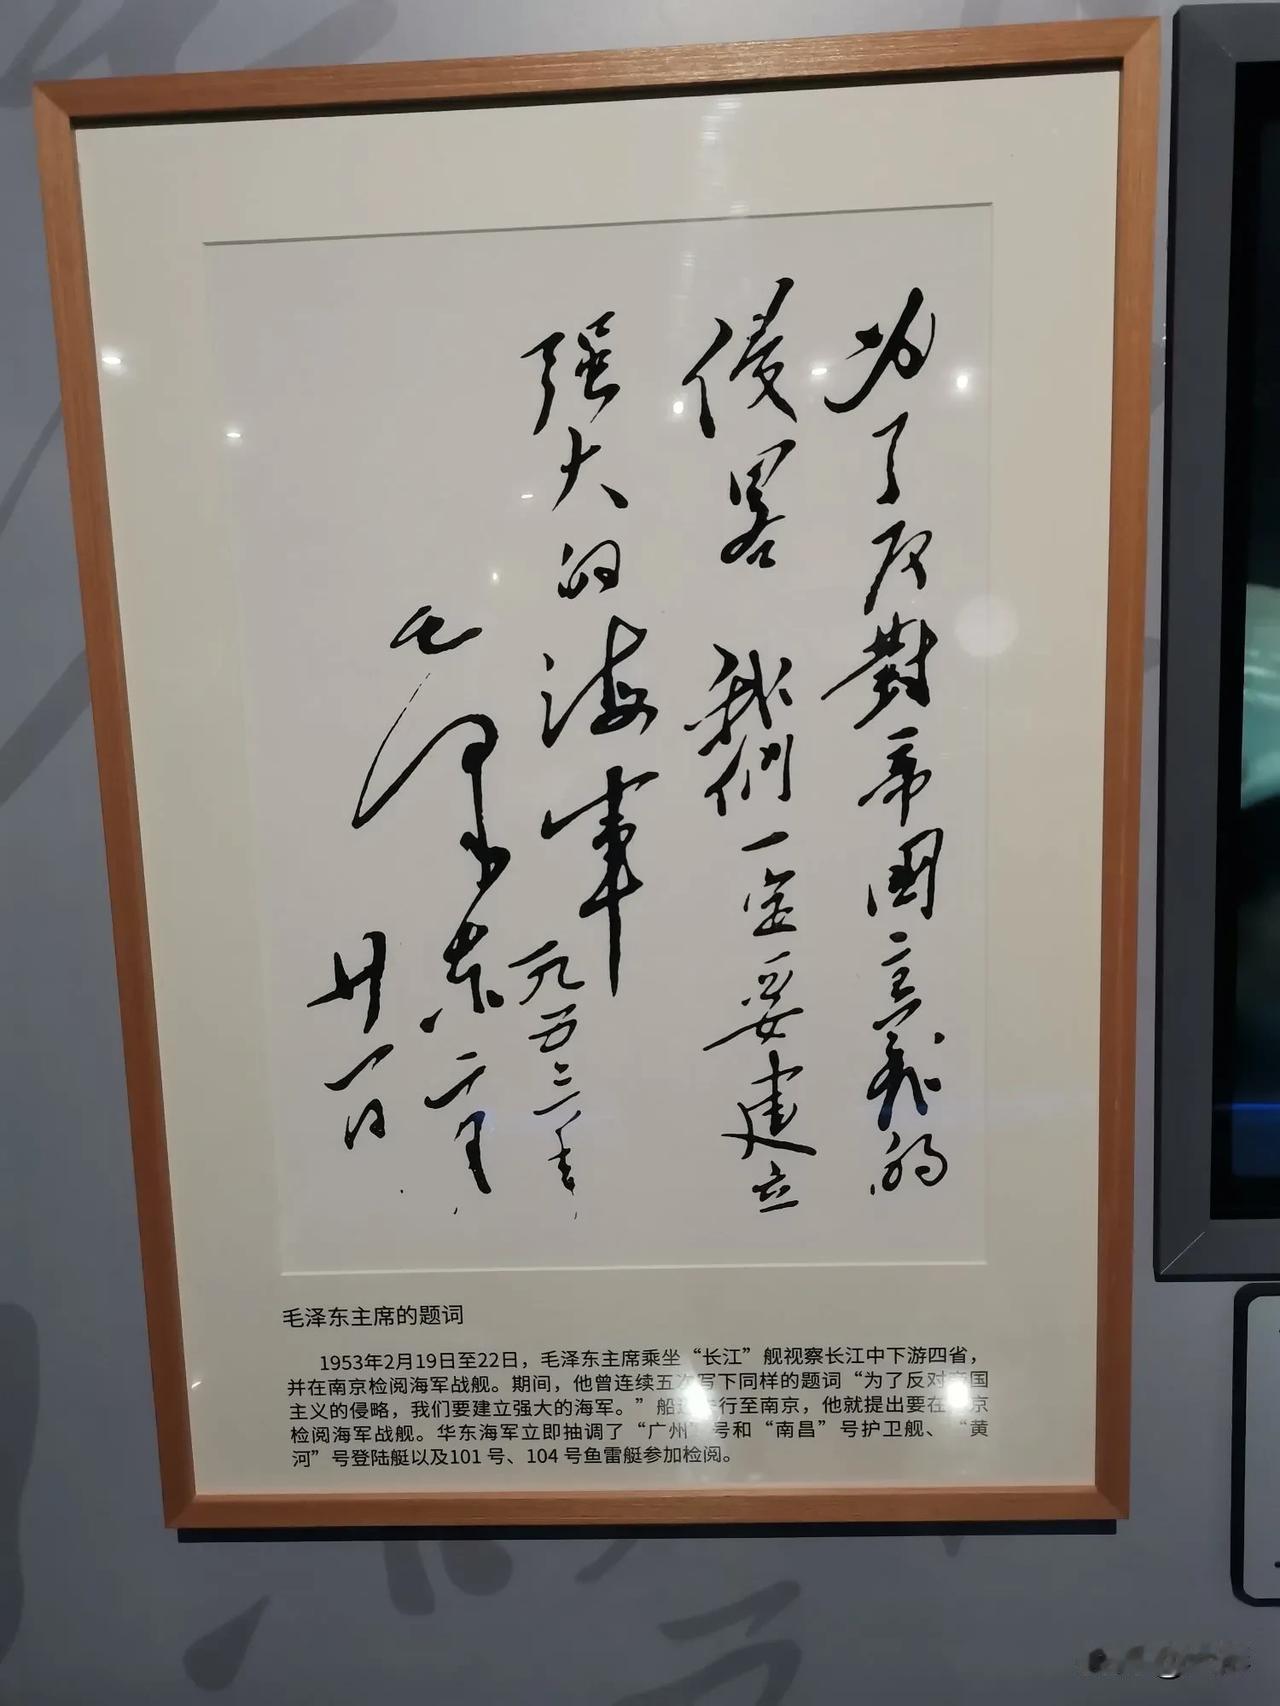 为了反對帝國主義的
侵畧 我們一定要建立
强大的海軍 一九五三年
毛澤东 二月
廿一日
毛泽东主席的题词
1953年2月19日至22日，毛泽东主席乘坐“长江”舰视察长江中下游四省，
并在南京检阅海军战舰。期间，他曾连续五次写下同样的题词“为了反对帝国
主义的侵略，我们要建立强大的海军。”船行至南京，他就提出要在南京
检阅海军战舰。华东海军立即抽调了“广州”号和“南昌”号护卫舰、“黄
河”号登陆艇以及101 号、104 号鱼雷艇参加检阅。